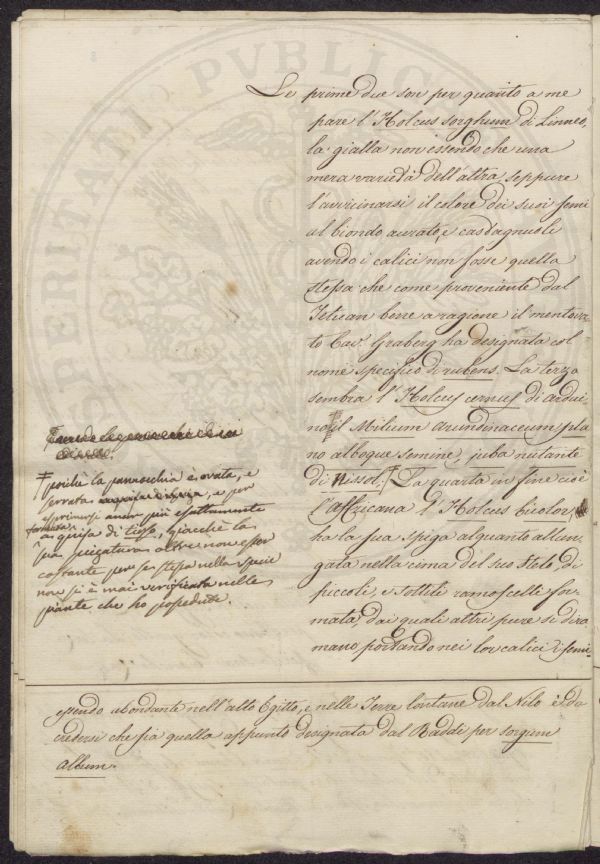 Le prime due son per quanto a me
pare l'Holcus sorghum di Linneo,
la gialla non essendo che una
mera varietà dell'altra, seppure
l'avvicinarsi il colore dei suoi semi
al biondo aurato, e castagnuoli
avendo i calici non fosse quella
stessa che come proveniente dal
Tetuan bene a ragione il mentova=
to Cav. Graberg ha designata col
nome specifico di rubens. La terza
sembra l'Holcus cernus di ardui
no, il Milium arundinaceum pla
no alboque semine, juba nutante
di Nissol. ‡ La quarta in fine cioè
l'affricana l'Holcus bicolor,
ha la sua spiga alquanto allun
gata nella cima del suo stelo, di
piccoli, e sottili ramoscelli for
mata, dai quali altri pure si dira
mano portando nei lor calici i semi-
‡ poichè la pannocchia è ovata, e
serrata, e per
esprimersi ancor più esattamente
formata
a guisa di tirso, giacchè la
sua
costante per se stessa nella specie
non si è mai verificata nelle
piante che ho possedute.
essendo abondante nell'alto Egitto, e nelle Terre lontane dal Nilo è da
credersi che sia quella appunto designata dal Raddi per sorgum
album.
PERI ATI PVBLIC